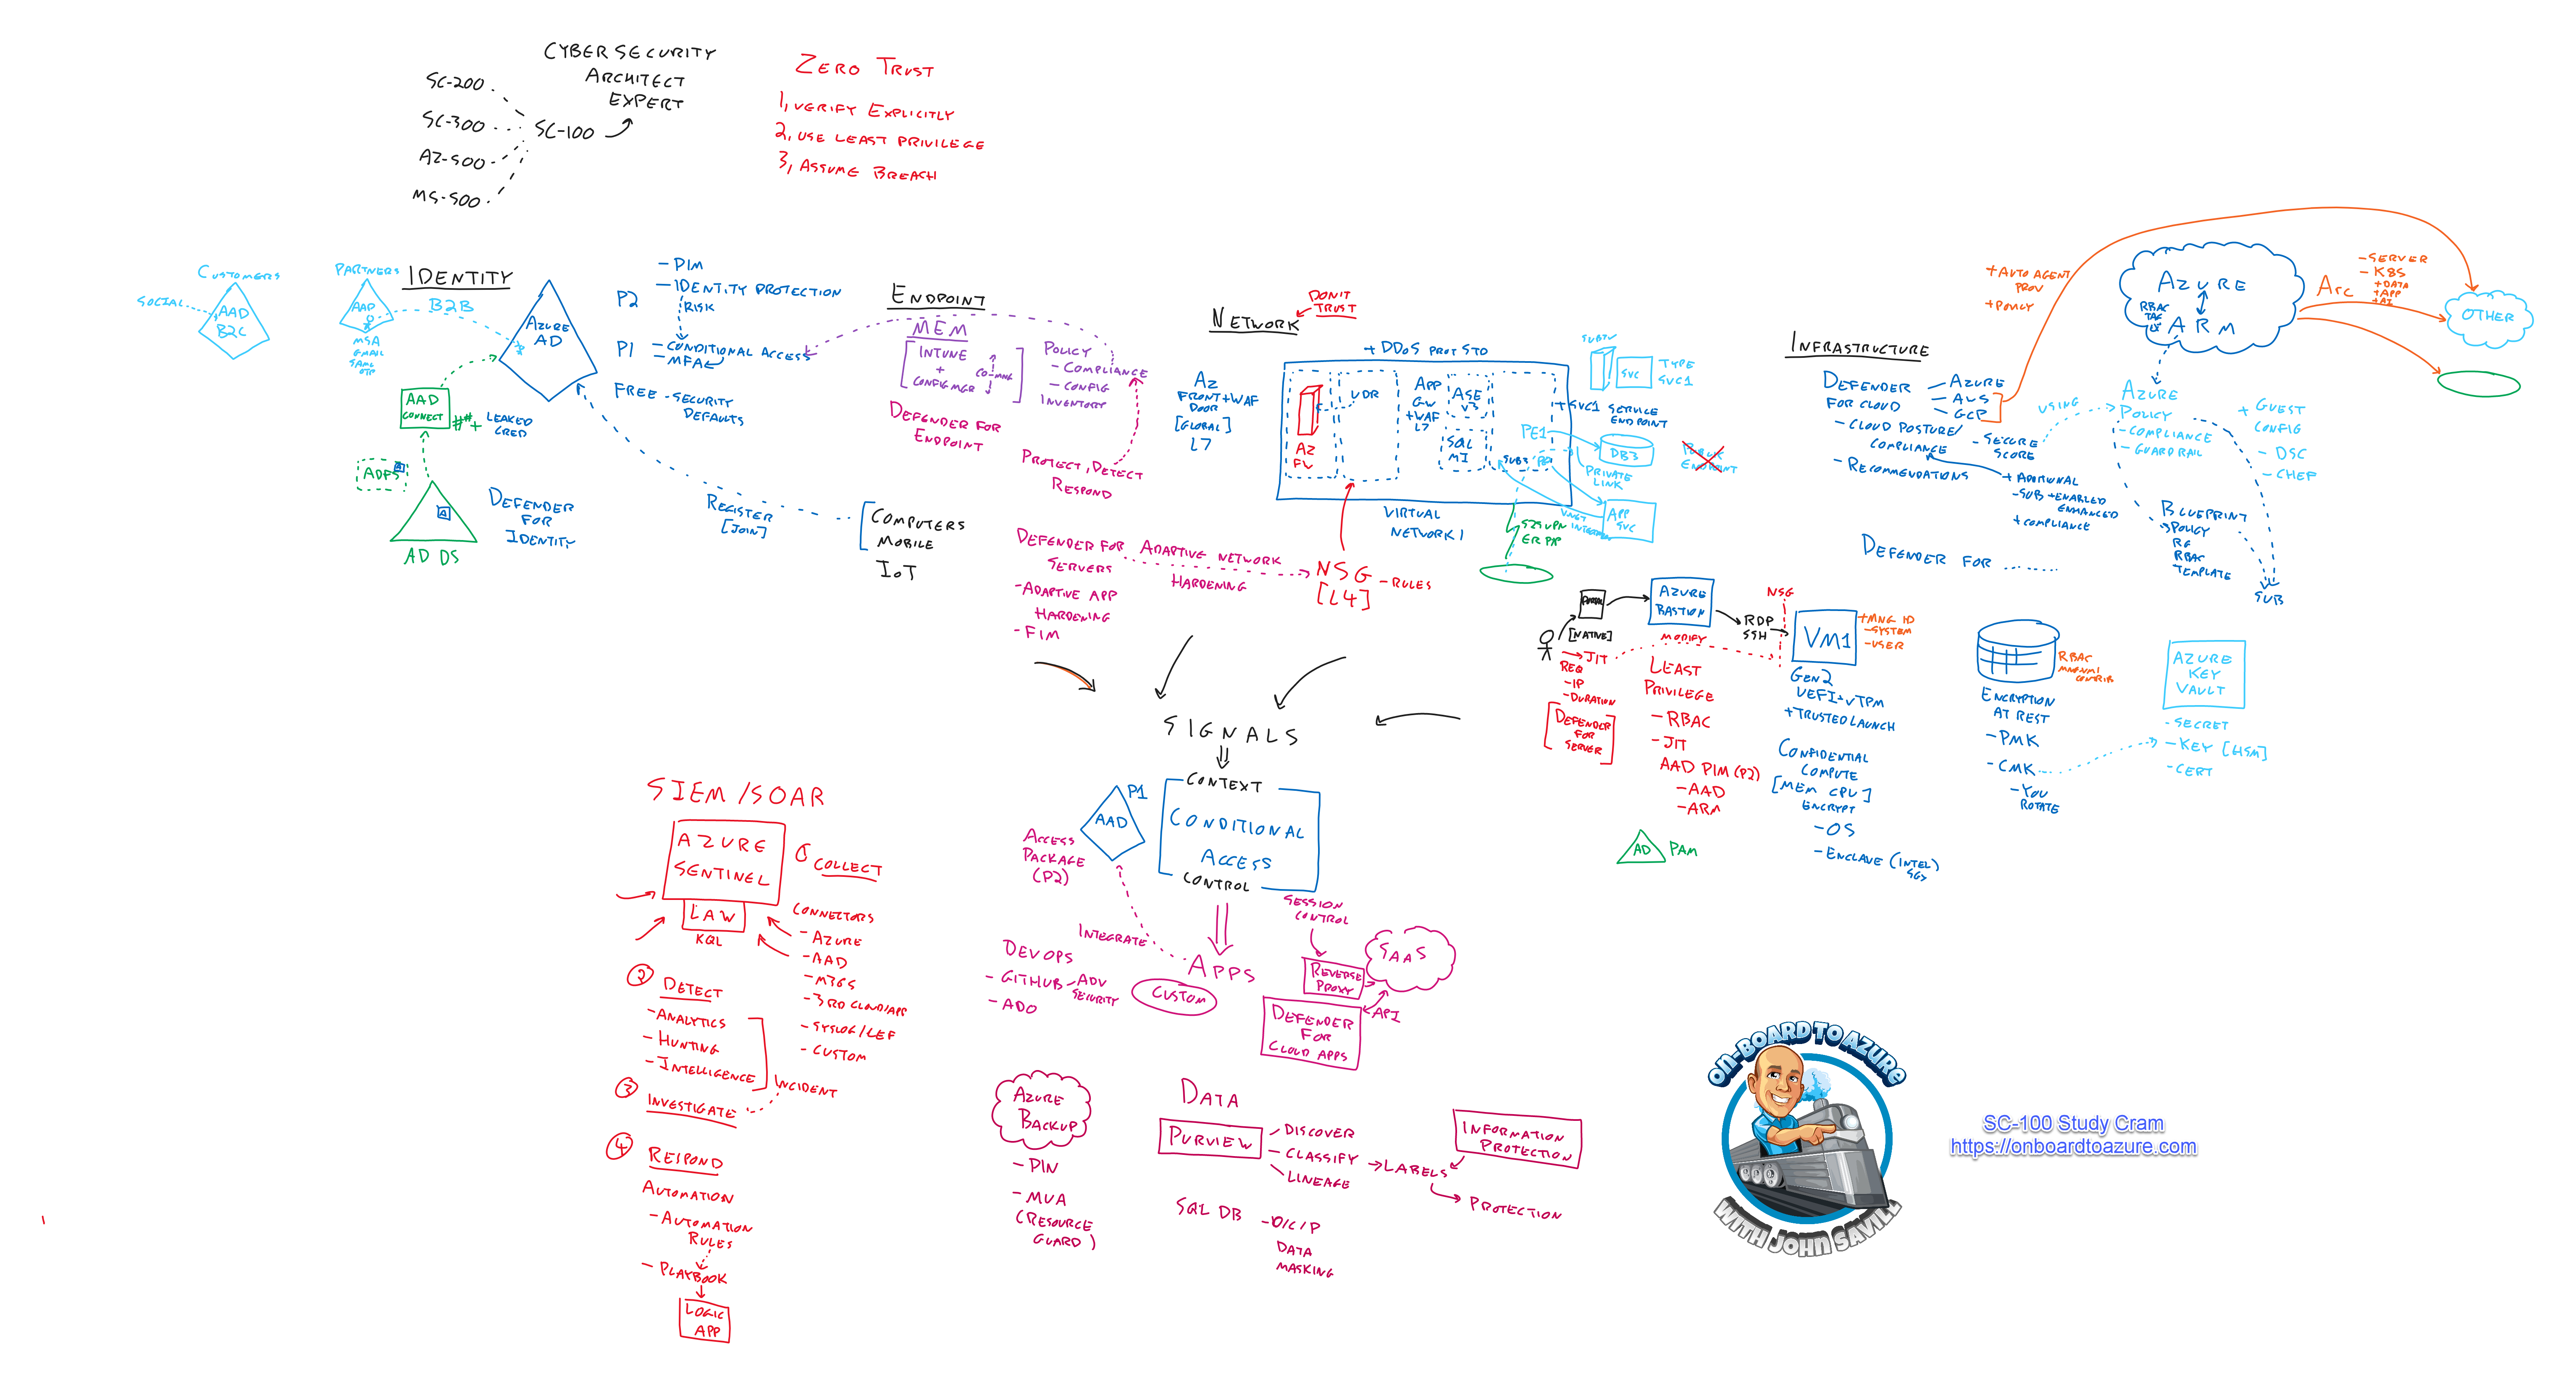 CYBER SECURITY
ARCHITECT
EXPERT
SC-200
SC-300
AZ-500
MS-500
SC-100
ZERO TRUST
1, VERIFY EXPLICITLY
2, USE LEAST PRIVILEGE
3, ASSUME BREACH
IDENTITY
CUSTOMERS
SOCIAL
AAD
B2C
PARTNERS
AAD
B2B
MSA
GMAIL
SAML
OTP
AZURE
AD
P2
- PIM
- IDENTITY PROTECTION
RISK
P1
- CONDITIONAL ACCESS
- MFA
FREE - SECURITY
DEFAULTS
AAD
CONNECT
## + LEAKED
CRED
ADFS
AD DS
DEFENDER
FOR
IDENTITY
REGISTER
[JOIN]
COMPUTERS
MOBILE
IoT
ENDPOINT
MEM
INTUNE
+
CONFIGMGR
CO-MNG
POLICY
- COMPLIANCE
- CONFIG
INVENTORY
DEFENDER FOR
ENDPOINT
PROTECT, DETECT
RESPOND
DEFENDER FOR
SERVERS
- ADAPTIVE APP
HARDENING
- FIM
ADAPTIVE NETWORK
HARDENING
NETWORK
DON'T
TRUST
+ DDoS PROT STD
AZ
FRONT + WAF
DOOR
[GLOBAL]
L7
AZ
FW
UDR
APP
GW
+WAF
L7
ASE
V3
SQL
MI
SUB3
PE1
+ SVC1 SERVICE
ENDPOINT
SVC
TYPE
SVC1
DB3
PRIVATE
LINK
APP
SVC
ENDPOINT
VIRTUAL
NETWORK 1
S2SVPN
ER PP
NSG - RULES
[L4]
INFRASTRUCTURE
DEFENDER
FOR CLOUD
- AZURE
- AWS
- GCP
- CLOUD POSTURE/
COMPLIANCE
- SECURE
SCORE
- RECOMMENDATIONS
+ ADDITIONAL
- SUB + ENABLED
ENHANCED
+ COMPLIANCE
DEFENDER FOR ......
+ AUTO AGENT
PROV
+ POLICY
AZURE
ARM
RBAC
TAG
ARC
- SERVER
- K8S
+ DATA
+ APP
+ AI
OTHER
USING
AZURE
POLICY
- COMPLIANCE
- GUARD RAIL
+ GUEST
CONFIG
- DSC
- CHEF
BLUEPRINT
POLICY
RG
RBAC
TEMPLATE
SUB
PORTAL
[NATIVE]
AZURE
BASTION
RDP
SSH
NSG
VM1
+ MNG ID
- SYSTEM
- USER
MODIFY
JIT
REQ
- IP
- DURATION
[DEFENDER
FOR
SERVER]
LEAST
PRIVILEGE
- RBAC
- JIT
AAD PIM (P2)
- AAD
- ARM
AD PAM
GEN2
UEFI + vTPM
+ TRUSTED LAUNCH
CONFIDENTIAL
COMPUTE
[MEM CPU]
ENCRYPT
- OS
- ENCLAVE (INTEL)
SGX
RBAC
ENCRYPTION
AT REST
- PMK
- CMK
- YOU
ROTATE
AZURE
KEY
VAULT
- SECRET
- KEY [HSM]
- CERT
SIGNALS
CONTEXT
CONDITIONAL
ACCESS
CONTROL
P1
AAD
ACCESS
PACKAGE
(P2)
INTEGRATE
APPS
CUSTOM
DEVOPS
- GITHUB - ADV
SECURITY
- ADO
SESSION
CONTROL
REVERSE
PROXY
SAAS
API
DEFENDER
FOR
CLOUD APPS
SIEM / SOAR
AZURE
SENTINEL
LAW
KQL
COLLECT
CONNECTORS
- AZURE
- AAD
- M365
- 3RD CLOUD/APP
- SYSLOG/CEF
- CUSTOM
2 DETECT
- ANALYTICS
- HUNTING
- INTELLIGENCE
INCIDENT
3 INVESTIGATE
4 RESPOND
AUTOMATION
- AUTOMATION
RULES
- PLAYBOOK
LOGIC
APP
AZURE
BACKUP
- PIN
- MUA
(RESOURCE
GUARD)
DATA
PURVIEW
- DISCOVER
- CLASSIFY
- LINEAGE
LABELS
PROTECTION
INFORMATION
PROTECTION
SQL DB
- D/C/P
DATA
MASKING
ON-BOARD TO AZURE
WITH JOHN SAVILL
SC-100 Study Cram
https://onboardtoazure.com